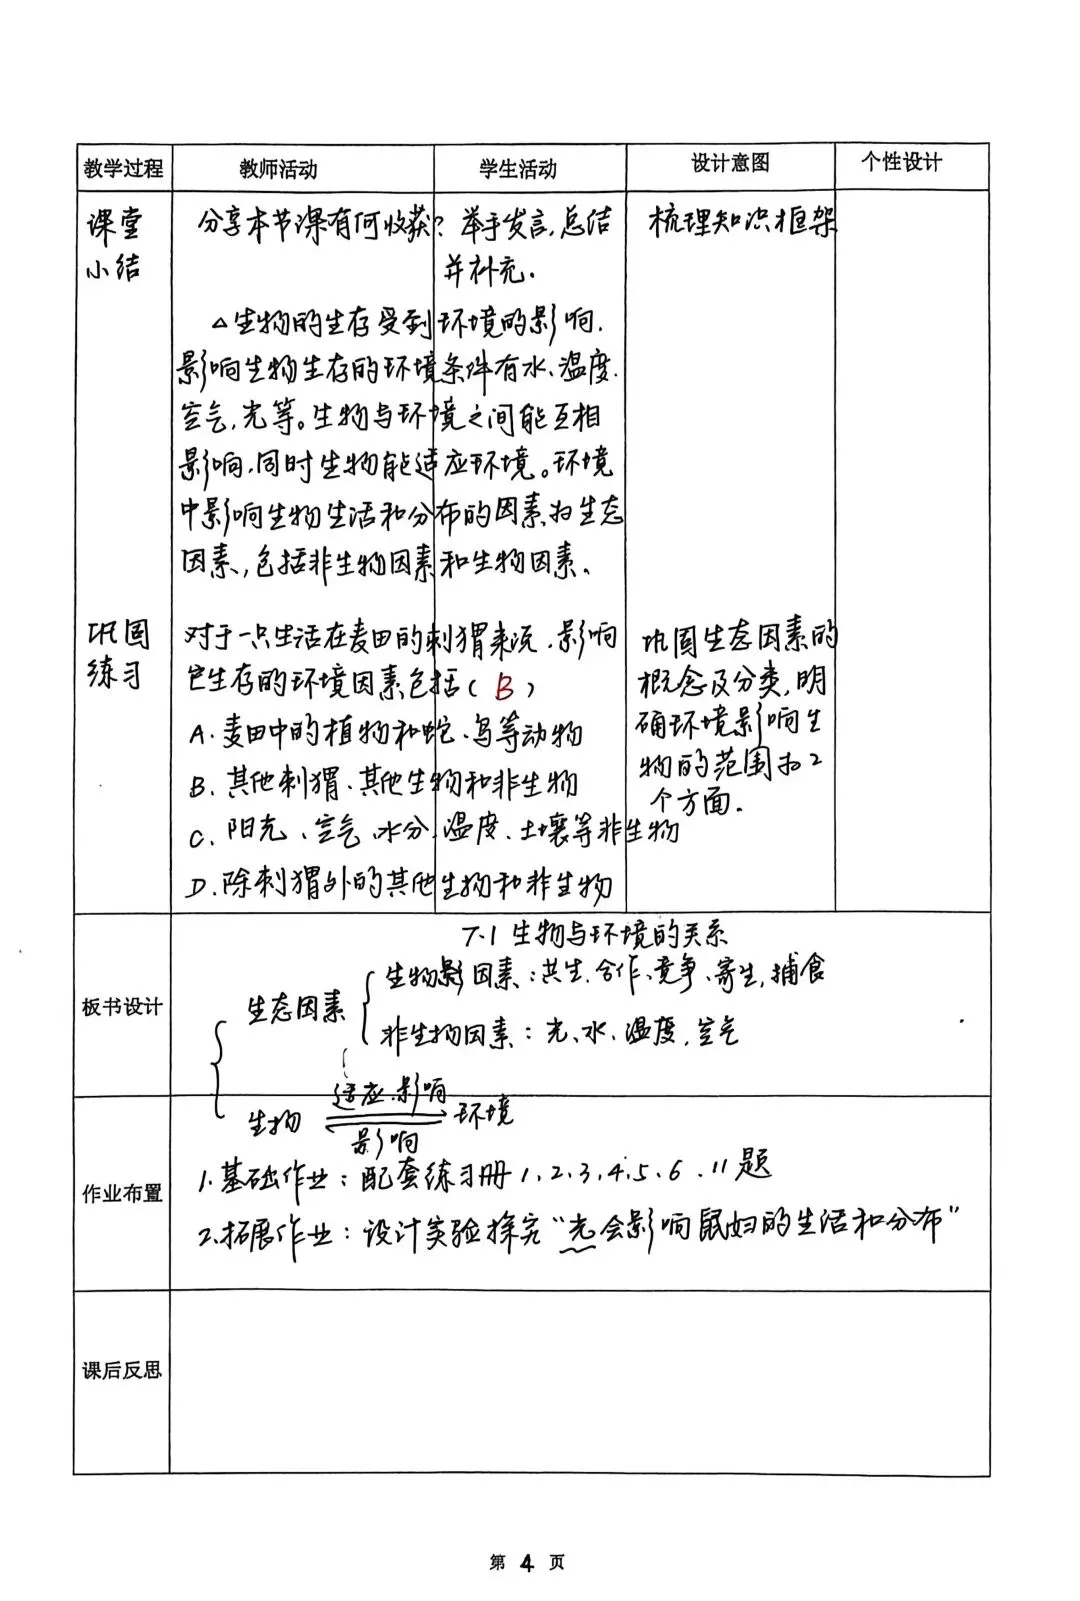 教学过程 教师活动 学生活动 设计意图 个性设计
课堂 分享本节课有何收获? 举手发言,总结 梳理知识框架
小结 并补充.
△生物的生存受到环境的影响.
影响生物生存的环境条件有水、温度.
空气,光等。生物与环境之间能互相
影响,同时生物能适应环境。环境
中影响生物生活和分布的因素为生态
因素,包括非生物因素和生物因素.
巩固 对于一只生活在麦田的刺猬来说,影响 巩固生态因素的
练习 它生存的环境因素包括( B ) 概念及分类,明
A.麦田中的植物和蛇、鸟等动物 确环境影响生
B.其他刺猬、其他生物和非生物 物的范围为2
个方面.
C.阳光、空气、水分、温度、土壤等非生物
D.除刺猬外的其他生物和非生物
7.1 生物与环境的关系
生物影因素:共生、合作、竞争、寄生,捕食
板书设计 生态因素
非生物因素:光、水、温度,空气
适应.影响
生物 环境
影响
1.基础作业:配套练习册1,2,3,4,5,6.11题
作业布置
2.拓展作业:设计实验探究“光会影响鼠妇的生活和分布”
课后反思
第 4 页